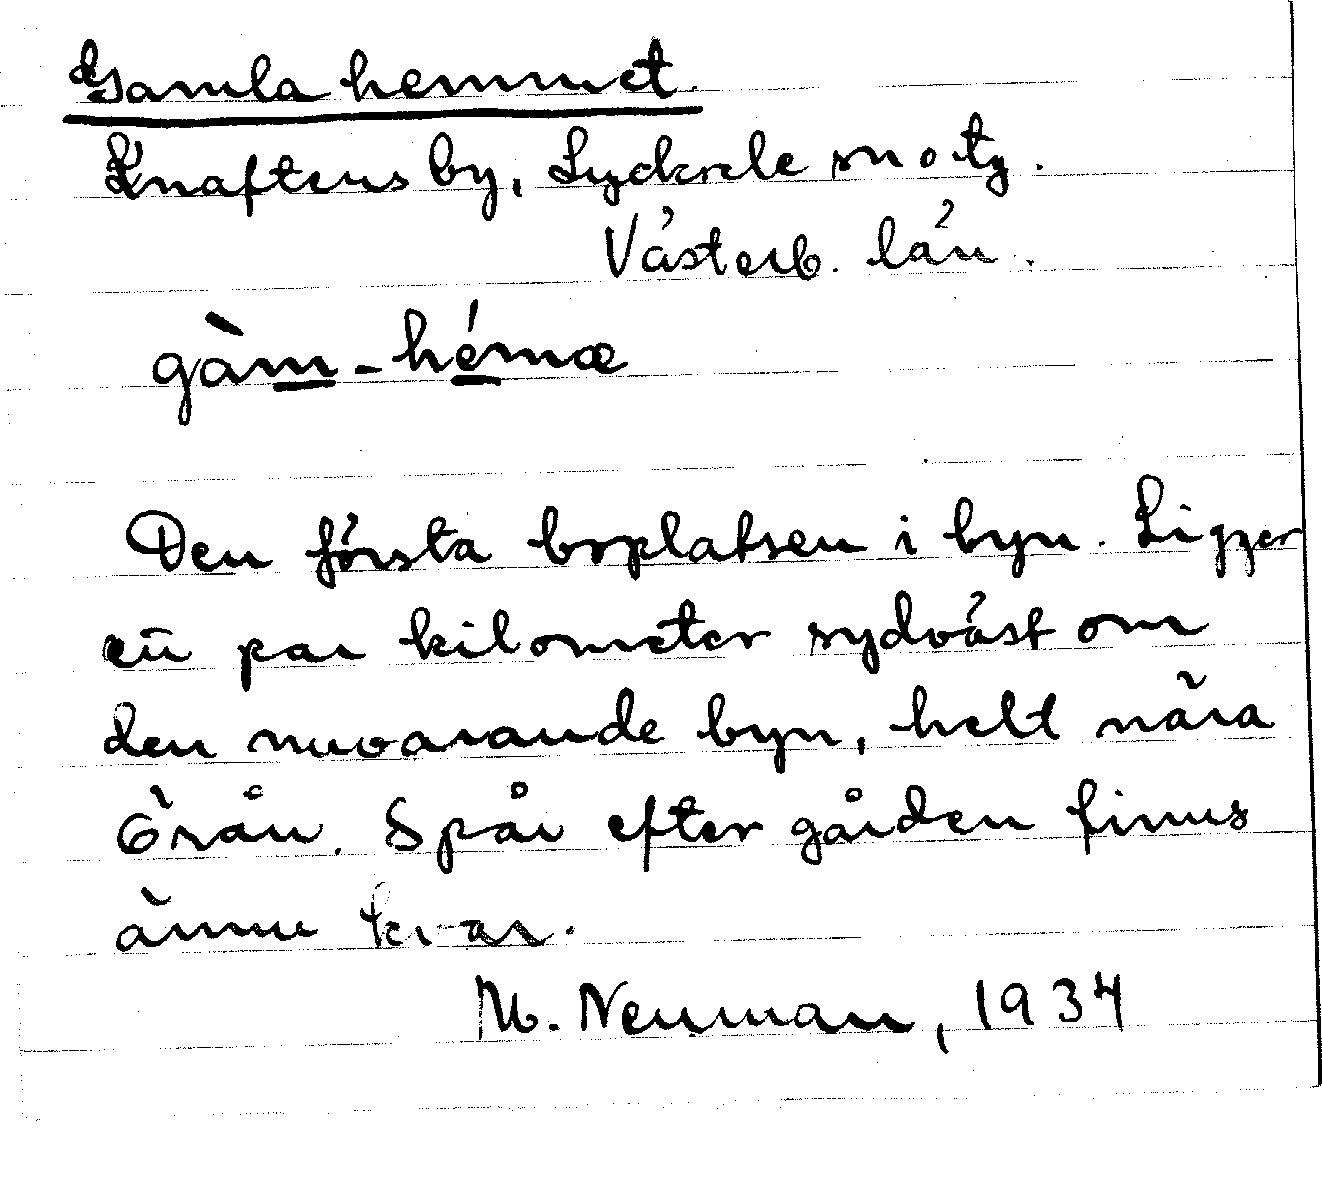 Gamla hemmet.
Knaftens by, Lycksele sn o tg.
Västerb. län.
gàm-hémæ
Den första boplatsen i byn. Ligger
ett par kilometer sydväst om
den nuvarande byn, helt nära
Örån. Spår efter gården finns
ännu kvar.
M. Neuman, 1934